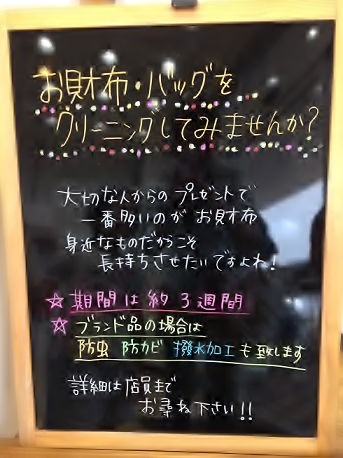 お財布・バッグを
クリーニングしてみませんか?
大切な人からのプレゼントで
一番多いのがお財布
身近なものだからこそ
長持ちさせたいですよね!
☆期間は約3週間
☆ブランド品の場合は
防虫 防カビ 撥水加工も致します
詳細は店員まで
お尋ね下さい!!